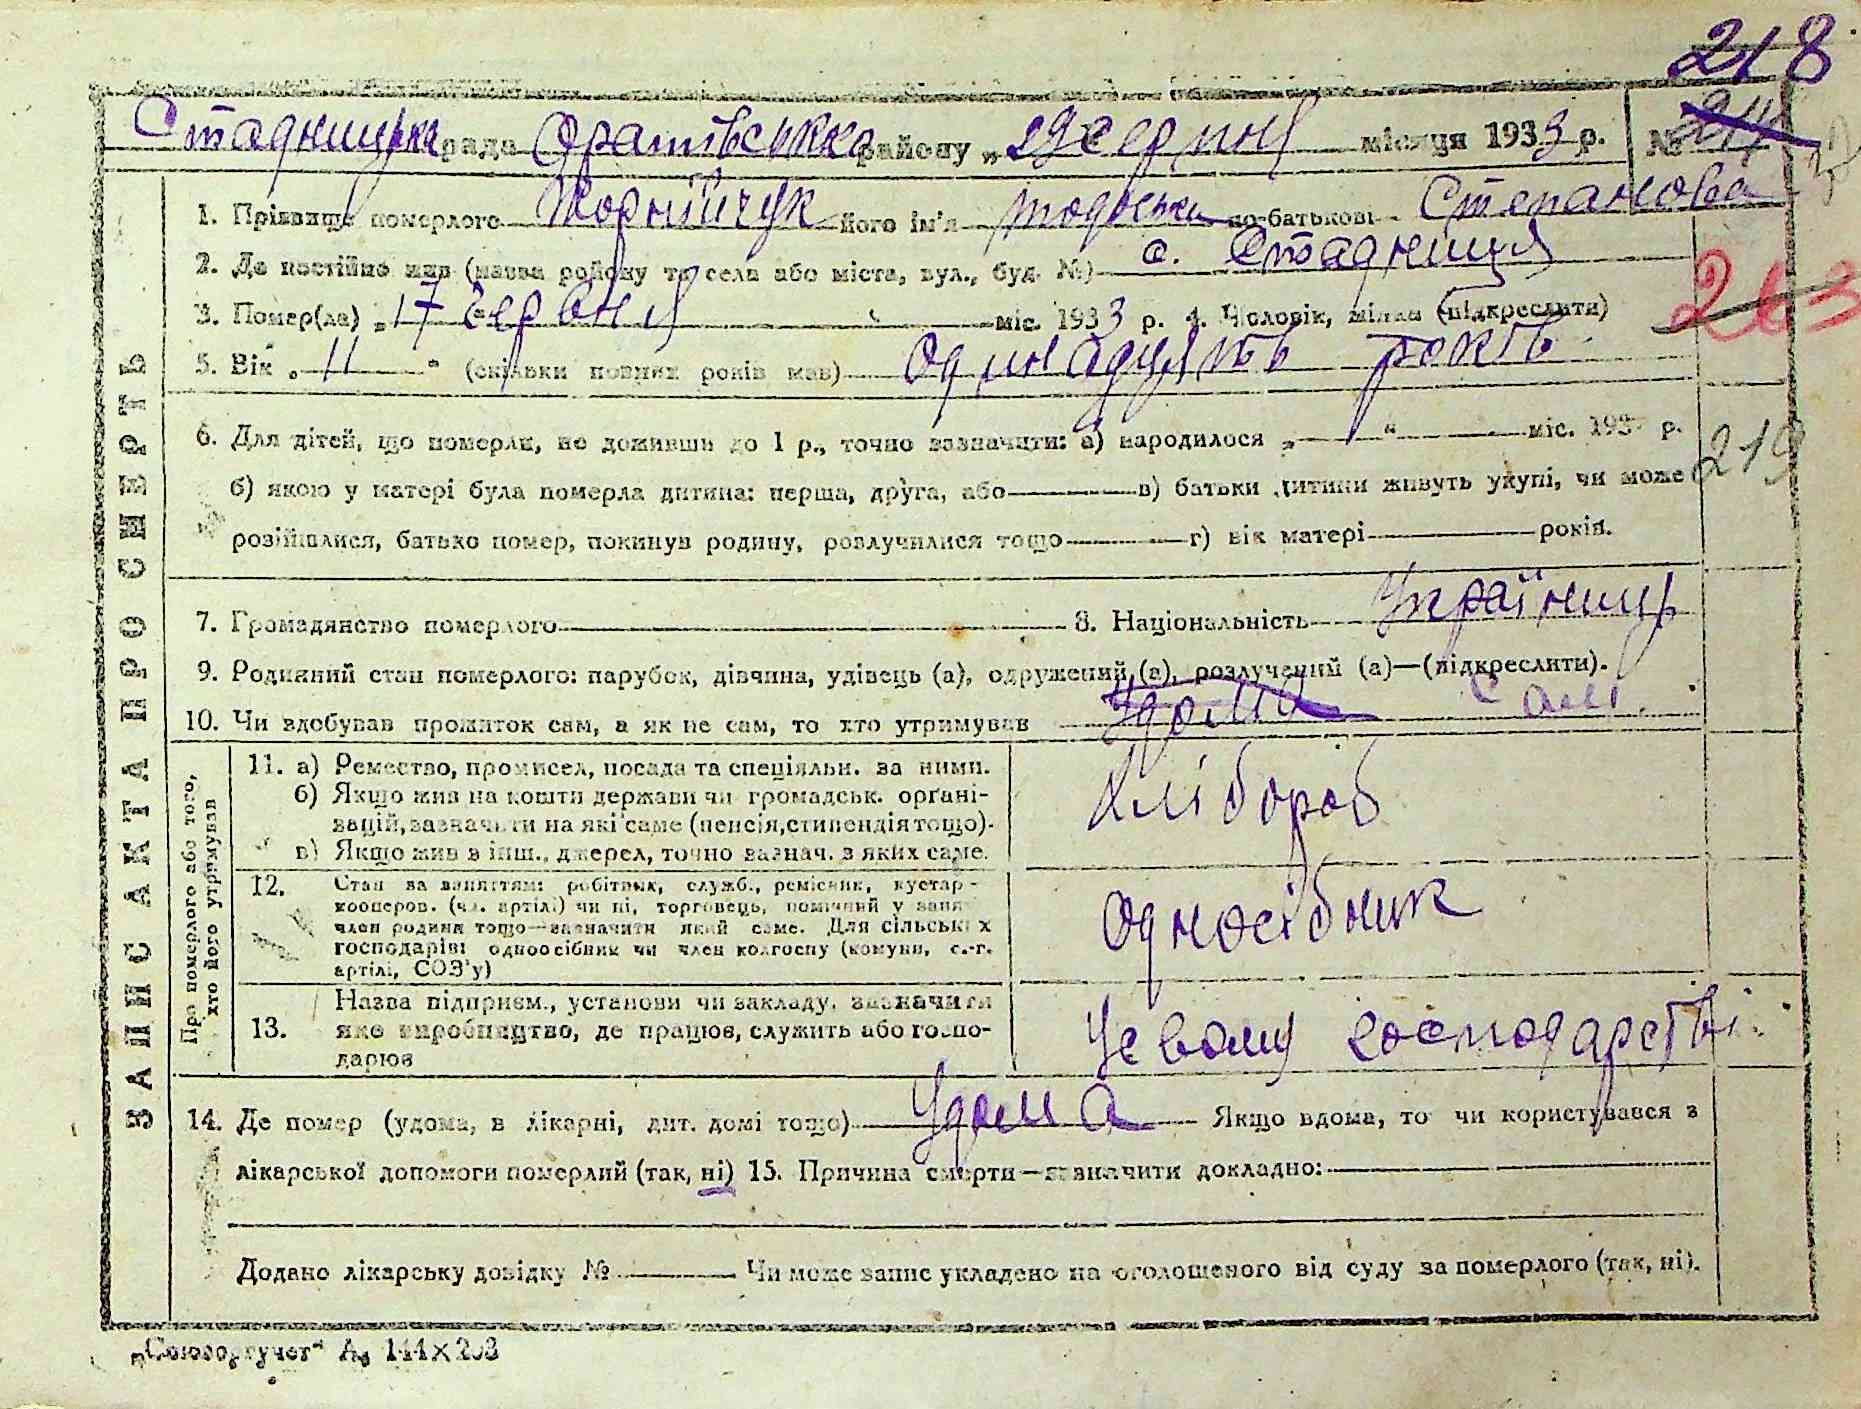 218
Стадницька рада Оратівська району „29 серпня місяця 1933 р. № 217
1. Прізвище померлого Корнійчук його ім'я тодоська по-батькові Степанова
2. Де постійно жив (назва району та села або міста, вул., буд. №) с. Стадниця
3. Помер(ла) „17 червня міс. 1933 р. 4. Чоловік, жінка (підкреслити) 263
5. Вік „11" (скільки повних років мав) Одинадцять років
6. Для дітей, що померли, не доживши до 1 р., точно зазначити: а) народилося „ " міс. 193 р. 219
б) якою у матері була померла дитина: перша, друга, або в) батьки дитини живуть укупі, чи може
розійшлися, батько помер, покинув родину, розлучилися тощо г) вік матері років.
7. Громадянство померлого 8. Національність Українець
9. Родинний стан померлого: парубок, дівчина, удівець (а), одружений (а), розлучений (а)—(підкреслити).
10. Чи здобував прожиток сам, а як не сам, то хто утримував Удома сам.
ЗАПИС АКТА ПРО СМЕРТЬ
Про померлого або того, хто його утримував
11. а) Ремество, промисел, посада та спеціяльн. за ними.
б) Якщо жив на кошти держави чи громадськ. органі-
зацій, зазначити на які саме (пенсія, стипендія тощо).
в) Якщо жив з інш., джерел, точно зазнач. з яких саме.
Хлібороб
12. Стан за заняттям: робітник, служб., ремісник, кустар-
кооперов. (чл. артілі) чи ні, торговець, помічний у занят.
член родини тощо—зазначити який саме. Для сільських
господарів: одноосібник чи член колгоспу (комуни, с.-г.
артілі, СОЗ'у)
Одноосібник
13. Назва підприєм., установи чи закладу, зазначити
яке виробництво, де працює, служить або госпо-
дарює
Усвому господарстві.
14. Де помер (удома, в лікарні, дит. домі тощо) Удома Якщо вдома, то чи користувався з
лікарської допомоги померлий (так, ні) 15. Причина смерти—зазначити докладно:
Додано лікарську довідку № Чи може запис укладено на оголошеного від суду за померлого (так, ні).
„Союзоргучет" А₆ 144×203